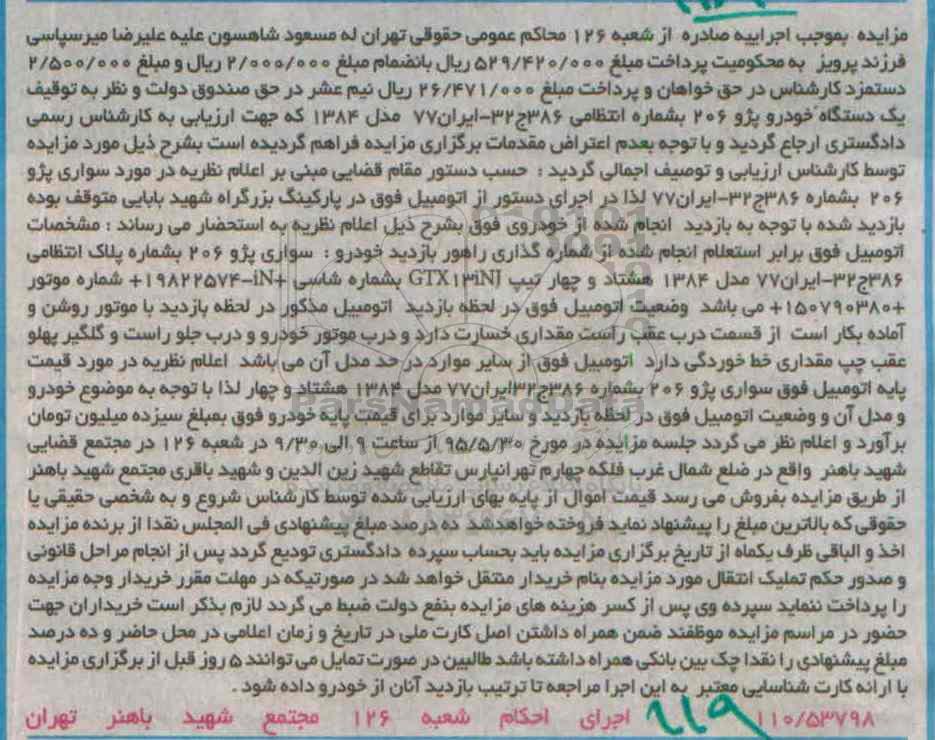 مزایده بموجب اجراییه صادره از شعبه ۱۲۶ محاکم عمومی حقوقی تهران له مسعود شاهسون علیه علیرضا میرسپاسی
فرزند پرویز به محکومیت پرداخت مبلغ ۵۲۹/۴۲۰/۰۰۰ ریال بانضمام مبلغ ۲/۰۰۰/۰۰۰ ریال و مبلغ ۲/۵۰۰/۰۰۰
دستمزد کارشناس در حق خواهان و پرداخت مبلغ ۲۶/۴۷۱/۰۰۰ ریال نیم عشر در حق صندوق دولت و نظر به توقیف
یک دستگاه خودرو پژو ۲۰۶ بشماره انتظامی ۳۸۶ج۳۲-ایران۷۷ مدل ۱۳۸۴ که جهت ارزیابی به کارشناس رسمی
دادگستری ارجاع گردید و با توجه بعدم اعتراض مقدمات برگزاری مزایده فراهم گردیده است بشرح ذیل مورد مزایده
توسط کارشناس ارزیابی و توصیف اجمالی گردید : حسب دستور مقام قضایی مبنی بر اعلام نظریه در مورد سواری پژو
۲۰۶ بشماره ۳۸۶ج۳۲-ایران۷۷ لذا در اجرای دستور از اتومبیل فوق در پارکینگ بزرگراه شهید بابایی متوقف بوده
بازدید شده با توجه به بازدید انجام شده از خودروی فوق بشرح ذیل اعلام نظریه به استحضار می رساند : مشخصات
اتومبیل فوق برابر استعلام انجام شده از شماره گذاری راهور بازدید خودرو : سواری پژو ۲۰۶ بشماره پلاک انتظامی
۳۸۶ج۳۲-ایران۷۷ مدل ۱۳۸۴ هشتاد و چهار تیپ GTX۱۳iNJ بشماره شاسی +۱۹۸۲۲۵۷۴-iN+ شماره موتور
+۱۵۰۷۹۰۳۸۰+ می باشد وضعیت اتومبیل فوق در لحظه بازدید اتومبیل مذکور در لحظه بازدید با موتور روشن و
آماده بکار است از قسمت درب عقب راست مقداری خسارت دارد و درب موتور خودرو و درب جلو راست و گلگیر پهلو
عقب چپ مقداری خط خوردگی دارد اتومبیل فوق از سایر موارد در حد مدل آن می باشد اعلام نظریه در مورد قیمت
پایه اتومبیل فوق سواری پژو ۲۰۶ بشماره ۳۸۶ج۳۲ایران۷۷ مدل ۱۳۸۴ هشتاد و چهار لذا با توجه به موضوع خودرو
و مدل آن و وضعیت اتومبیل فوق در لحظه بازدید و سایر موارد برای قیمت پایه خودرو فوق بمبلغ سیزده میلیون تومان
برآورد و اعلام نظر می گردد جلسه مزایده در مورخ ۹۵/۵/۳۰ از ساعت ۹ الی ۹/۳۰ در شعبه ۱۲۶ در مجتمع قضایی
شهید باهنر واقع در ضلع شمال غرب فلکه چهارم تهرانپارس تقاطع شهید زین الدین و شهید باقری مجتمع شهید باهنر
از طریق مزایده بفروش می رسد قیمت اموال از پایه بهای ارزیابی شده توسط کارشناس شروع و به شخصی حقیقی یا
حقوقی که بالاترین مبلغ را پیشنهاد نماید فروخته خواهدشد ده درصد مبلغ پیشنهادی فی المجلس نقدا از برنده مزایده
اخذ و الباقی ظرف یکماه از تاریخ برگزاری مزایده باید بحساب سپرده دادگستری تودیع گردد پس از انجام مراحل قانونی
و صدور حکم تملیک انتقال مورد مزایده بنام خریدار منتقل خواهد شد در صورتیکه در مهلت مقرر خریدار وجه مزایده
را پرداخت ننماید سپرده وی پس از کسر هزینه های مزایده بنفع دولت ضبط می گردد لازم بذکر است خریداران جهت
حضور در مراسم مزایده موظفند ضمن همراه داشتن اصل کارت ملی در تاریخ و زمان اعلامی در محل حاضر و ده درصد
مبلغ پیشنهادی را نقدا چک بین بانکی همراه داشته باشد طالبین در صورت تمایل می توانند ۵ روز قبل از برگزاری مزایده
با ارائه کارت شناسایی معتبر به این اجرا مراجعه تا ترتیب بازدید آنان از خودرو داده شود .
۱۱۰/۵۳۷۹۸ ۱۱۹ اجرای احکام شعبه ۱۲۶ مجتمع شهید باهنر تهران
ParsNamadData